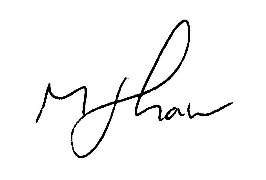 M Shaw